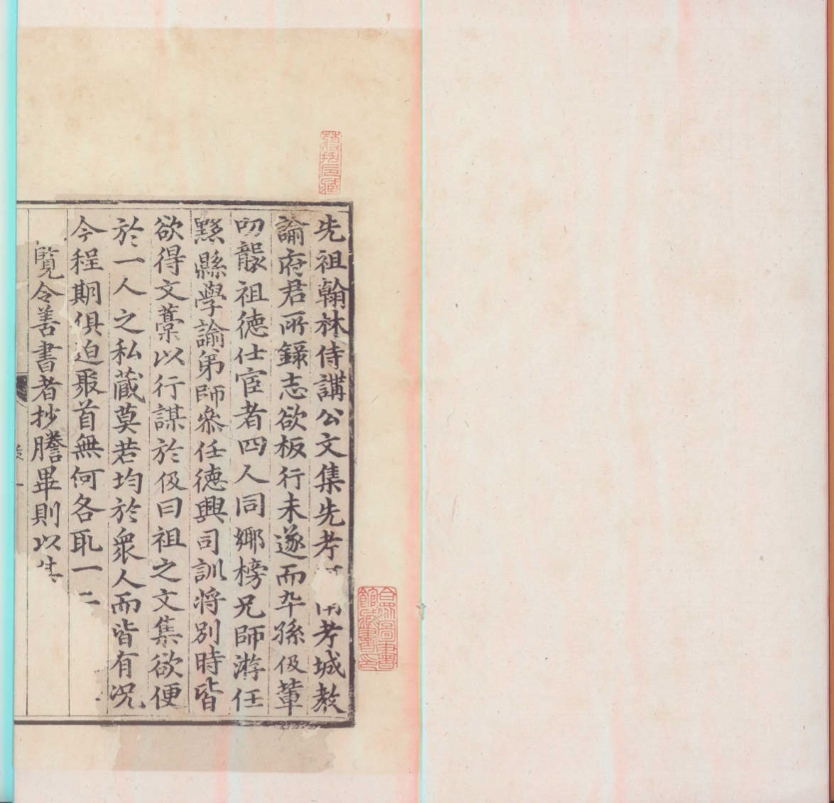 先祖翰林侍講公文集先考 考城教
諭府君所錄志欲板行未遂而卒孫伋輩
叨襲祖德仕宦者四人同鄉榜兄師游任
黟縣學諭弟師叅任德興司訓將別時皆
欲得文藁以行謀於伋曰祖之文集欲便
於一人之私藏莫若均於衆人而皆有况
今程期俱迫聚首無何各取一
覽令善書者抄謄畢則以